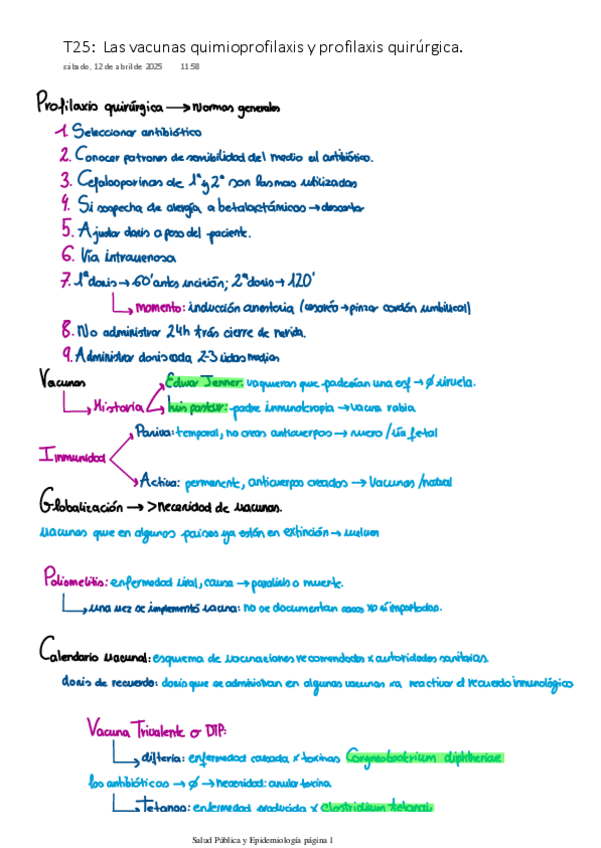 T25: Las vacunas quimioprofilaxis y profilaxis quirúrgica.
sábado, 12 de abril de 2025 11:58
Profilaxis quirúrgica → normas generales
1. Seleccionar antibiótico
2. Conocer patrones de sensibilidad del medio al antibiótico.
3. Cefalosporinas de 1ª y 2ª son las mas utilizadas
4. Si sospecha de alergia a betalactámicos → descartar
5. Ajustar dosis a peso del paciente.
6. Vía intravenosa
7. 1ª dosis → 60' antes incisión; 2ª dosis → 120'
momento: inducción anestesia (cesárea → pinzar cordón umbilical)
8. No administrar 24h tras cierre de herida.
9. Administrar dosis cada 2-3 vidas medias
Vacunas
Historia
Edwar Jenner: vaqueras que padecían una enf → ø viruela.
luis pasteur: padre inmunoterapia → vacuna rabia
Inmunidad
Pasiva: temporal, no creas anticuerpos → suero / vía fetal
Activa: permanente, anticuerpos creados → Vacunas / natural
Globalización → > necesidad de vacunas.
vacunas que en algunos paises ya están en extinción → vuelven
Poliomelitis: enfermedad viral, causa → parálisis o muerte.
una vez se implementó vacuna: no se documentan casos xo sí importados.
Calendario vacunal: esquema de vacunaciones recomendadas x autoridades sanitarias.
dosis de recuerdo: dosis que se administran en algunas vacunas xa reactivar el recuerdo inmunológico
Vacuna Trivalente o DTP:
difteria: enfermedad causada x toxinas Corynebacterium diphtheriae
los antibióticos → ø → necesidad: anular toxina
Tetanos: enfermedad producida x clostridium tetanai
Salud Pública y Epidemiología página 1